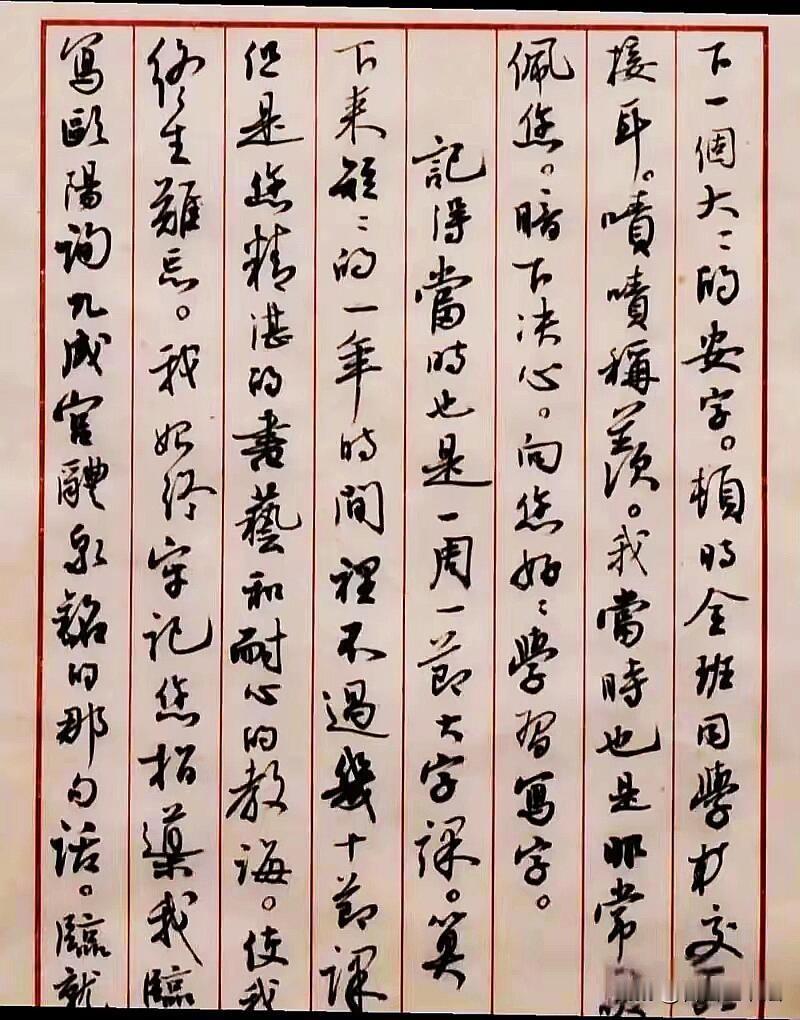 下一個大〻的安字。頓時全班同學交
接耳。嘖嘖稱羨。我當時也是非常
佩您。暗下决心。向您好〻學習寫字。
記得當時也是一周一節大字課。算
下來短〻的一年時間裡不過幾十節課
但是您精湛的書藝和耐心的教誨。使我
終生難忘。我始終牢記您指導我臨
寫歐陽詢九成宮醴泉銘的那句話。臨就